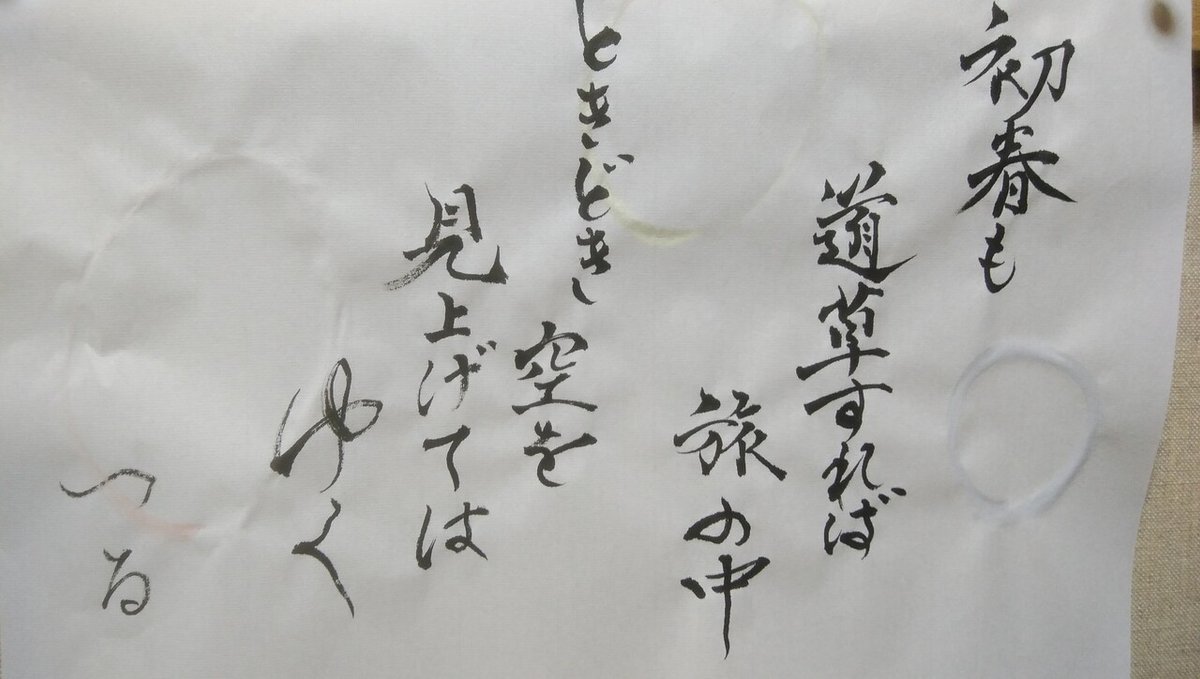 初春も
道草すれば
旅の中
ときどき
空を
見上げては
ゆく
つる